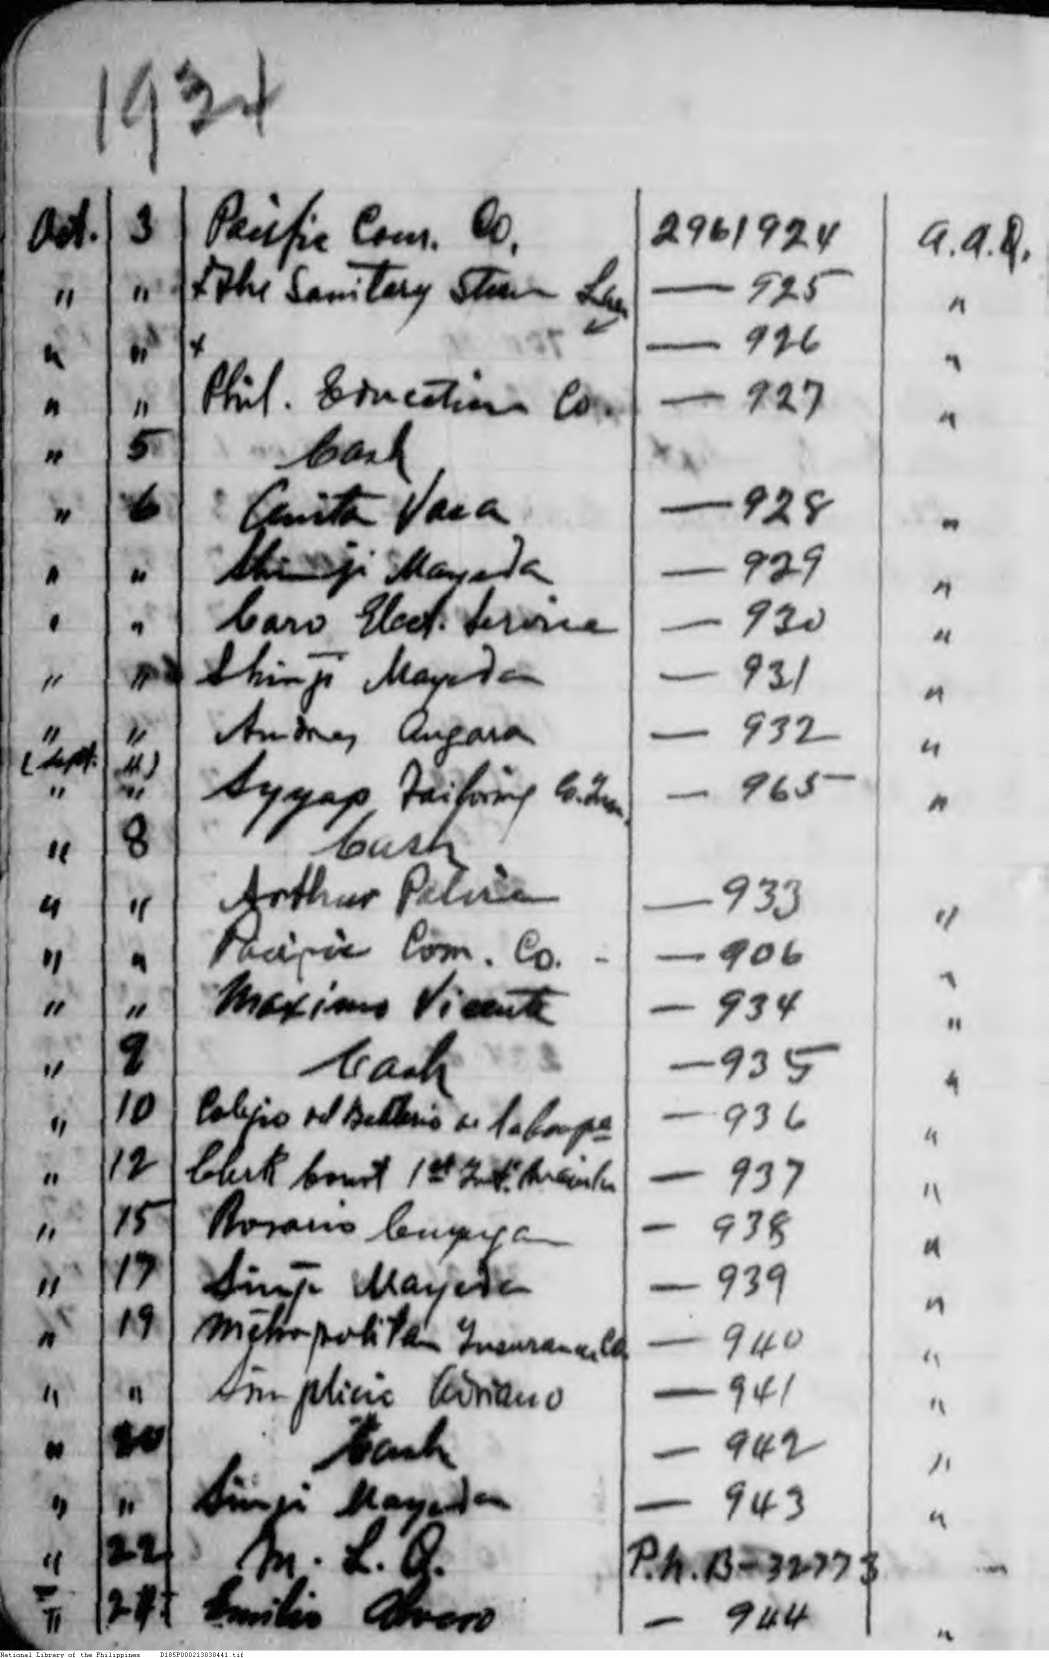 1934
Oct. 3 Pacific Com. Co. 2961924 a.a.Q.
" " + The Sanitary Steam Lau — 925 "
" " + — 926 "
" " Phil. Education Co. — 927 "
" 5 Cash
" 6 Anita Vaca — 928 "
" " Shinji Mayeda — 929 "
" " Caro Elect. Service — 930 "
" " Shinji Mayeda — 931 "
" " Andres Angara — 932 "
(Sept. 11)
" " Syyap Tailoring Co. — 965 "
" 8 Cash
" " Arthur — 933 "
" " Pacific Com. Co. - — 906 "
" " Maximo Vicente — 934 "
" 9 Cash — 935 "
" 10 Colegio del de — 936 "
" 12 Clerk Court 1st Inst. — 937 "
" 15 Rosario — 938 "
" 17 Sinji Mayeda — 939 "
" 19 Metropolitan Insurance Co — 940 "
" " Simplicio Adriano — 941 "
" 20 Cash — 942 "
" " Sinji Mayeda — 943 "
" 22 M. L. Q. P.N.B-32773 —
" 24 Emilio Alvaro — 944 "
National Library of the Philippines D185P000213838441.tif